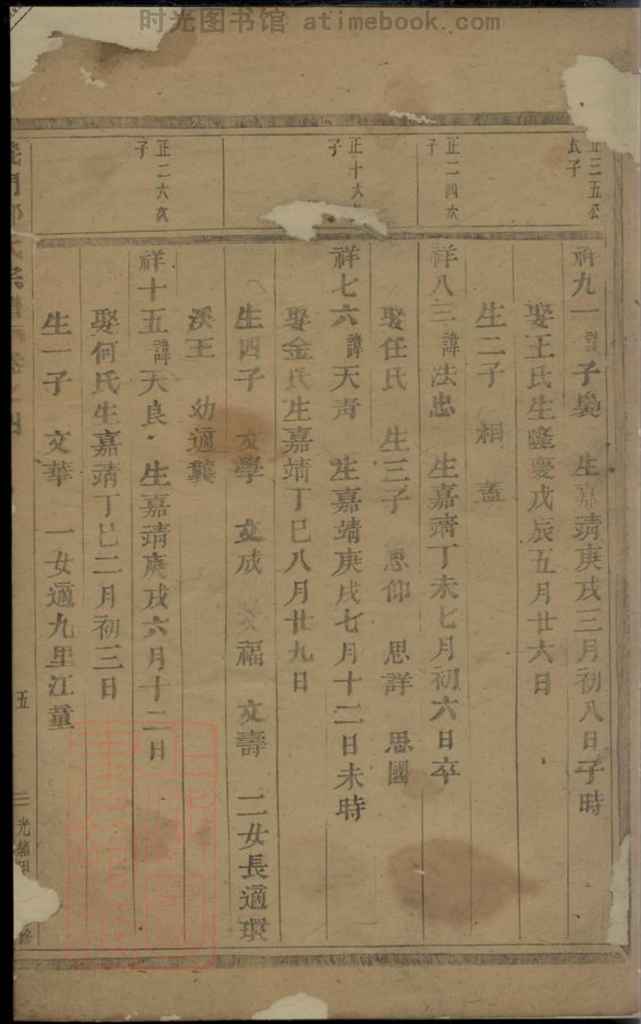 时光图书馆 atimebook.com
正三五公
子
祥九一 諱子 生嘉靖庚戌三月初八日子時
娶王氏生隆慶戊辰五月廿六日
生二子 相
正二四次
子
祥八三諱法忠 生嘉靖丁未七月初六日卒
娶任氏 生三子 思仰 思詳 思國
正十六
子
祥七六諱天青 生嘉靖庚戌七月十二日未時
娶金氏生嘉靖丁巳八月廿九日
生四子 文學 文成 文福 文壽 二女長適環
溪王 幼適龔
正二六次
子
祥十五諱天良 生嘉靖庚戌六月十二日
娶何氏生嘉靖丁巳二月初三日
生一子 文華 一女適九里江董
氏宗譜
五
光緒